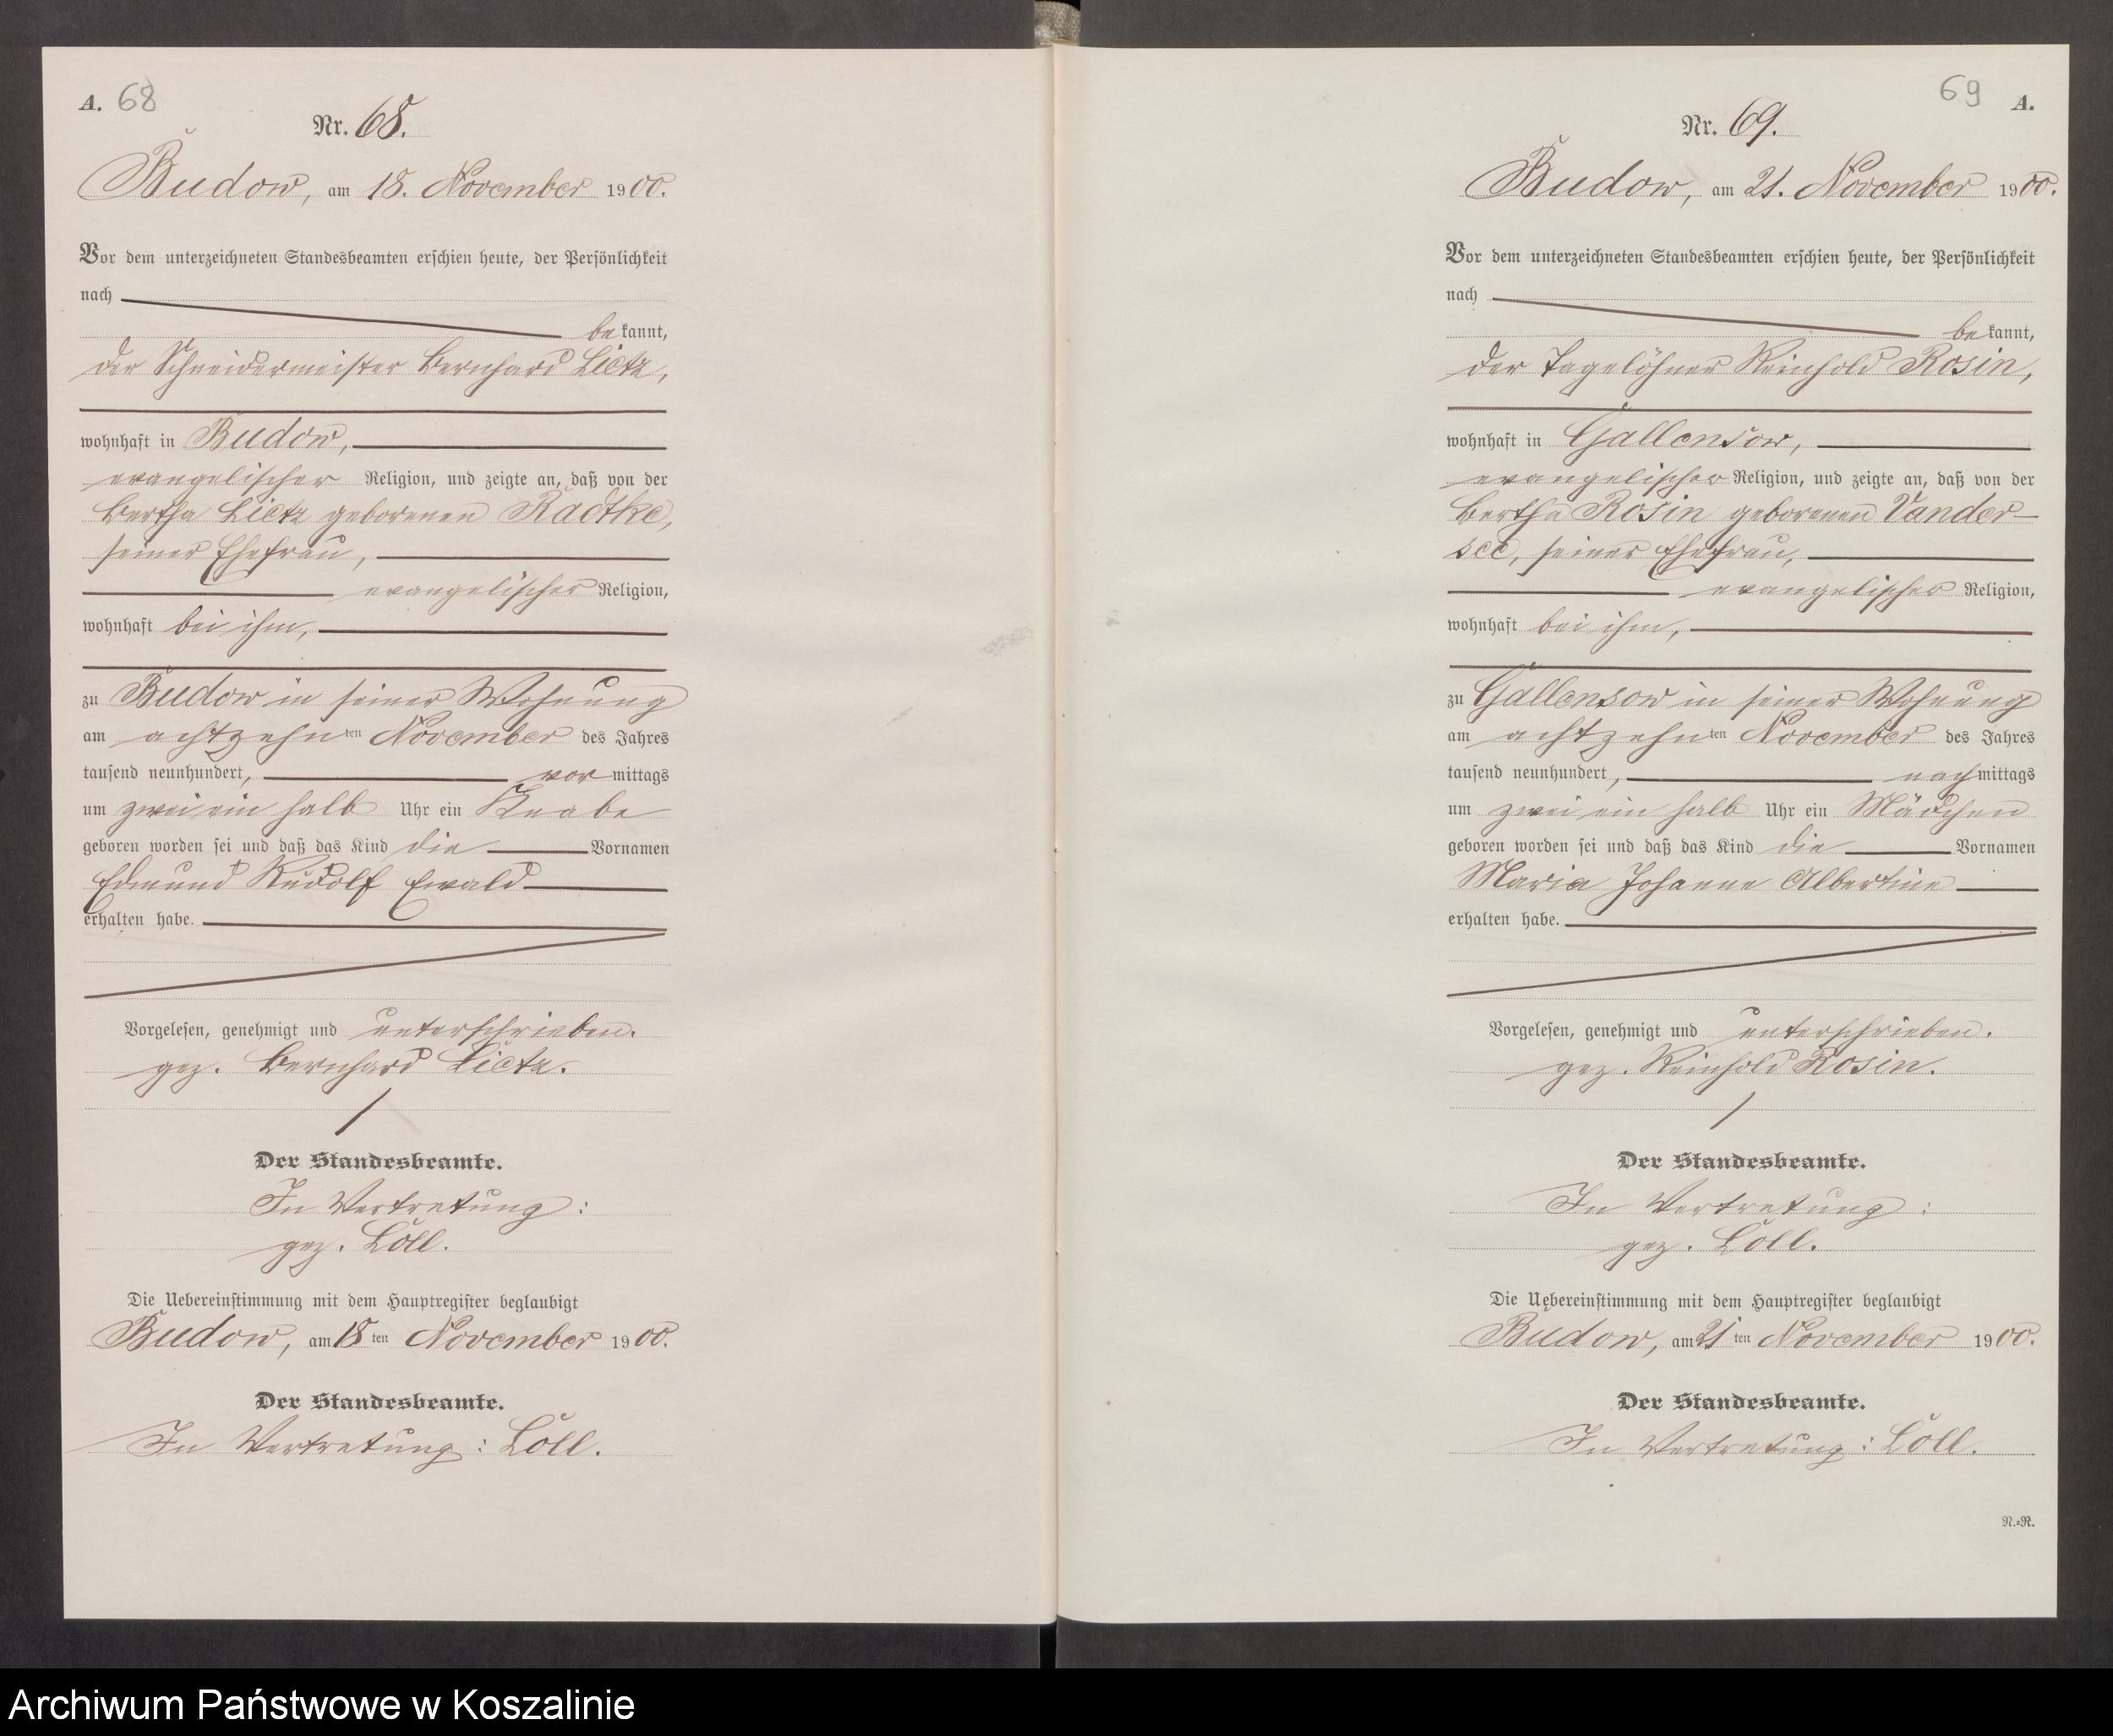 A. 68
Nr. 68.
Budow, am 18. November 1900.
Vor dem unterzeichneten Standesbeamten erschien heute, der Persönlichkeit
nach
bekannt,
der Schneidermeister Bernhard Lietz,
wohnhaft in Budow,
evangelischer Religion, und zeigte an, daß von der
Bertha Lietz geborenen Radtke,
seiner Ehefrau,
evangelischer Religion,
wohnhaft bei ihm,
zu Budow in seiner Wohnung
am achtzehnten November des Jahres
tausend neunhundert, vormittags
um zwei ein halb Uhr ein Knabe
geboren worden sei und daß das Kind die Vornamen
Edmund Rudolf Ewald
erhalten habe.
Vorgelesen, genehmigt und unterschrieben.
gez. Bernhard Lietz.
Der Standesbeamte.
In Vertretung:
gez. Löll.
Die Uebereinstimmung mit dem Hauptregister beglaubigt
Budow, am 18ten November 1900.
Der Standesbeamte.
In Vertretung: Löll.
69 A.
Nr. 69.
Budow, am 21. November 1900.
Vor dem unterzeichneten Standesbeamten erschien heute, der Persönlichkeit
nach
bekannt,
der Tagelöhner Reinhold Rosin,
wohnhaft in Gallensow,
evangelischer Religion, und zeigte an, daß von der
Bertha Rosin geborenen Vander-
see, seiner Ehefrau,
evangelischer Religion,
wohnhaft bei ihm,
zu Gallensow in seiner Wohnung
am achtzehnten November des Jahres
tausend neunhundert, nachmittags
um zwei ein halb Uhr ein Mädchen
geboren worden sei und daß das Kind die Vornamen
Maria Johanne Albertine
erhalten habe.
Vorgelesen, genehmigt und unterschrieben.
gez. Reinhold Rosin.
Der Standesbeamte.
In Vertretung:
gez. Löll.
Die Uebereinstimmung mit dem Hauptregister beglaubigt
Budow, am 21ten November 1900.
Der Standesbeamte.
In Vertretung: Löll.
N.=R.
Archiwum Państwowe w Koszalinie